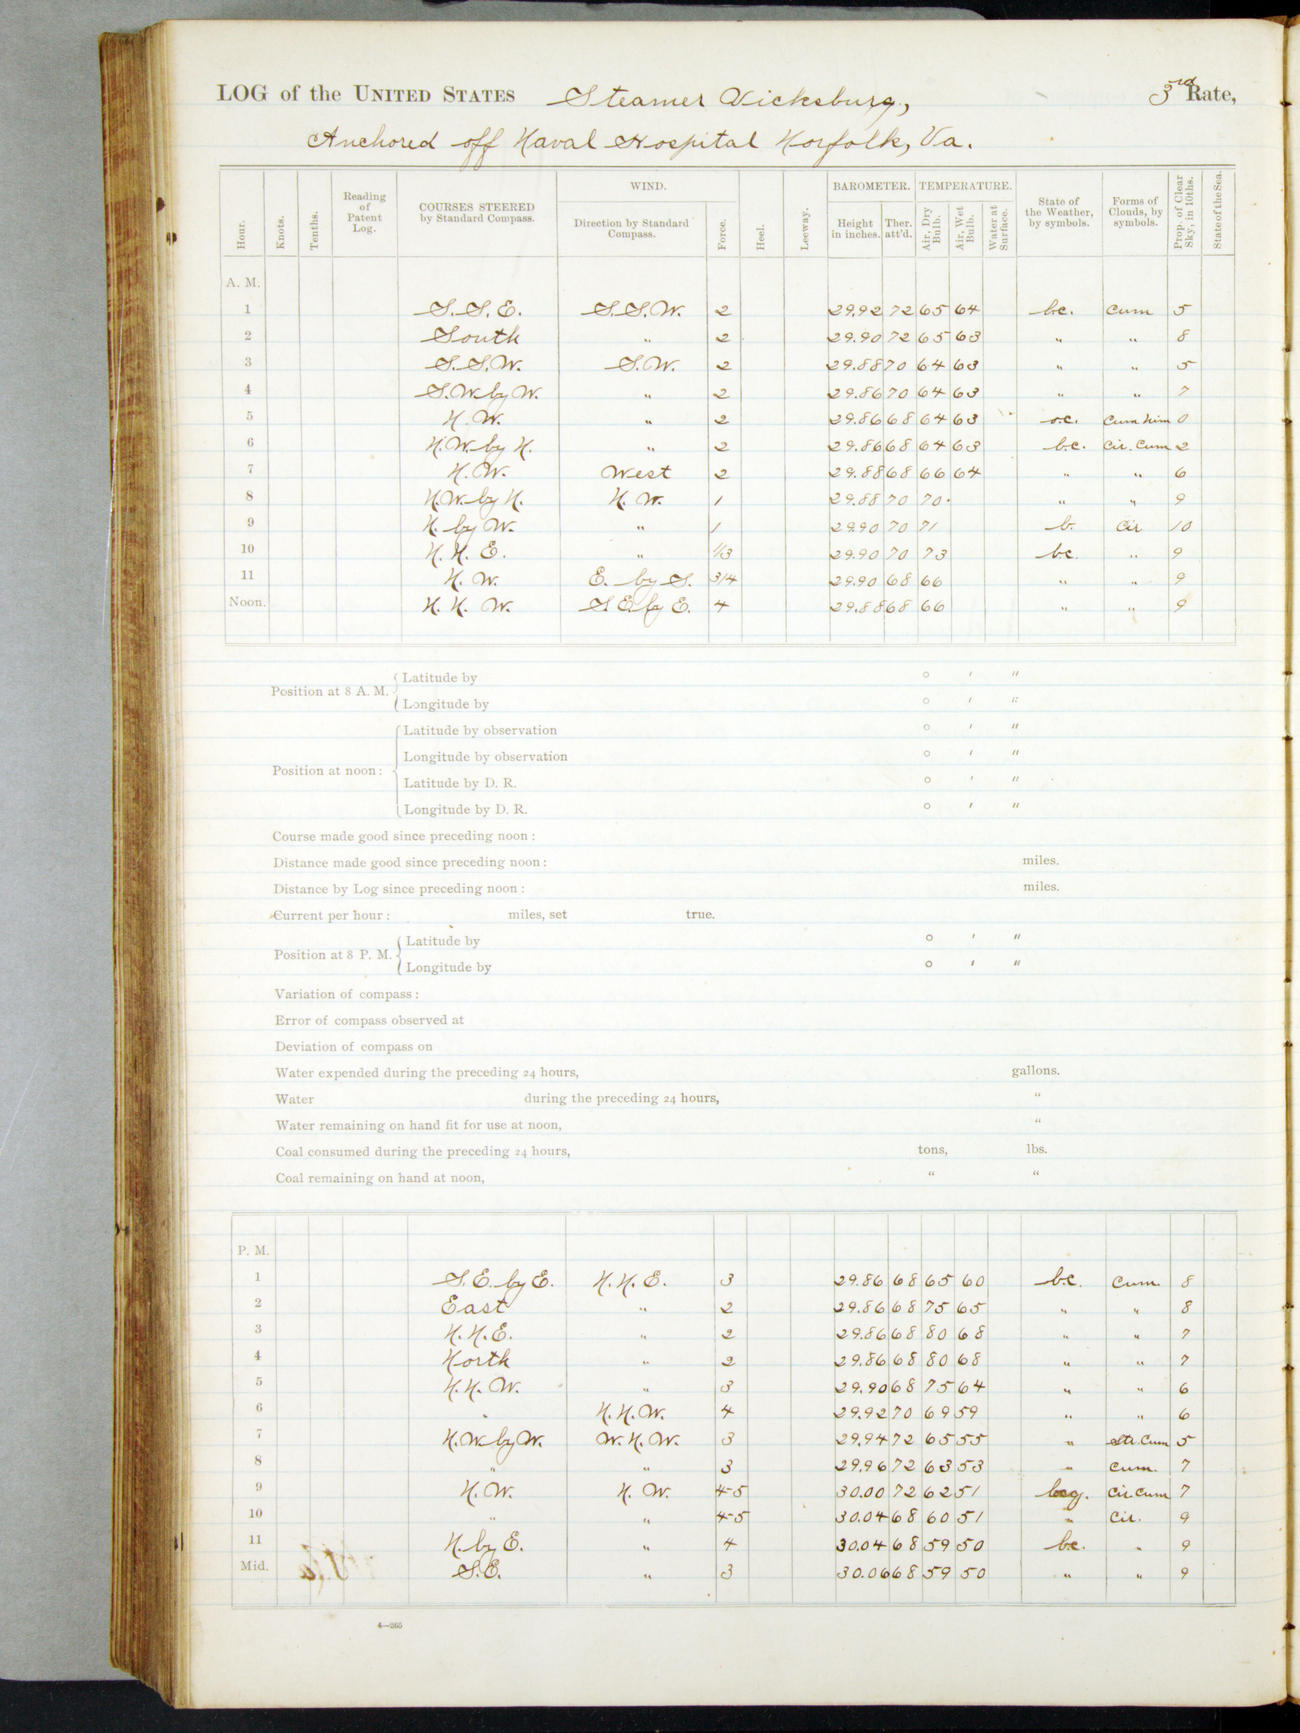 LOG of the UNITED STATES Steamer Vicksburg, 3rd Rate,
Anchored off Naval Hospital Norfolk, Va.
Hour. Knots. Tenths. Reading of Patent Log. COURSES STEERED by Standard Compass. WIND. Direction by Standard Compass. Force. Heel. Leeway. BAROMETER. Height in inches. Ther. att'd. TEMPERATURE. Air, Dry Bulb. Air, Wet Bulb. Water at Surface. State of the Weather, by symbols. Forms of Clouds, by symbols. Prop. of Clear Sky, in 10ths. State of the Sea.
A. M.
1 S.S.E. S.S.W. 2 29.92 72 65 64 b.c. Cum 5
2 South " 2 29.90 72 65 63 " " 8
3 S.S.W. S.W. 2 29.88 70 64 63 " " 5
4 S.W. by W. " 2 29.86 70 64 63 " " 7
5 N.W. " 2 29.86 68 64 63 o.c. Cum Nim 0
6 N.W. by N. " 2 29.86 68 64 63 b.c. Cir. Cum 2
7 N.W. West 2 29.88 68 66 64 " " 6
8 N.W. by N. N.W. 1 29.88 70 70 " " 9
9 N. by W. " 1 29.90 70 71 b. Cir 10
10 N.N.E. " 1/3 29.90 70 73 b.c. " 9
11 N.W. E. by S. 3/4 29.90 68 66 " " 9
Noon. N.N.W. S.E. by E. 4 29.88 68 66 " " 9
Position at 8 A. M. Latitude by ° ′ ″
Longitude by ° ′ ″
Position at noon: Latitude by observation ° ′ ″
Longitude by observation ° ′ ″
Latitude by D. R. ° ′ ″
Longitude by D. R. ° ′ ″
Course made good since preceding noon:
Distance made good since preceding noon: miles.
Distance by Log since preceding noon: miles.
Current per hour: miles, set true.
Position at 8 P. M. Latitude by ° ′ ″
Longitude by ° ′ ″
Variation of compass:
Error of compass observed at
Deviation of compass on
Water expended during the preceding 24 hours, gallons.
Water during the preceding 24 hours, "
Water remaining on hand fit for use at noon, "
Coal consumed during the preceding 24 hours, tons, lbs.
Coal remaining on hand at noon, " "
P. M.
1 S.E. by E. N.N.E. 3 29.86 68 65 60 b.c. Cum. 8
2 East " 2 29.86 68 75 65 " " 8
3 N.N.E. " 2 29.86 68 80 68 " " 7
4 North " 2 29.86 68 80 68 " " 7
5 N.N.W. " 3 29.90 68 75 64 " " 6
6 " N.N.W. 4 29.92 70 69 59 " " 6
7 N.W. by W. W.N.W. 3 29.94 72 65 55 " Str. Cum 5
8 " " 3 29.96 72 63 53 " Cum. 7
9 N.W. N.W. 4-5 30.00 72 62 51 bcq. Cir. Cum 7
10 " " 4-5 30.04 68 60 51 " Cir. 9
11 N. by E. " 4 30.04 68 59 50 b.c. " 9
Mid. S.E. " 3 30.06 68 59 50 " " 9
4—265